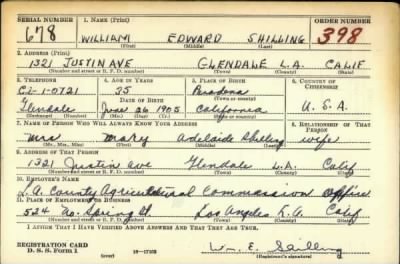 SERIAL NUMBER 1. NAME (Print) ORDER NUMBER
678 WILLIAM EDWARD SHILLING 398
(First) (Middle) (Last)
2. ADDRESS (Print)
1321 JUSTIN AVE GLENDALE L.A. CALIF
(Number and street or R. F. D. number) (Town) (County) (State)
3. TELEPHONE 4. AGE IN YEARS 5. PLACE OF BIRTH 6. COUNTRY OF CITIZENSHIP
CI-1-0721 35 Pasadena
DATE OF BIRTH (Town or county)
Glendale June 26 1905 California U. S. A.
(Exchange) (Number) (Mo.) (Day) (Yr.) (State or country)
7. NAME OF PERSON WHO WILL ALWAYS KNOW YOUR ADDRESS 8. RELATIONSHIP OF THAT PERSON
Mrs Mary Adelaide Shilling wife
(Mr., Mrs., Miss) (First) (Middle) (Last)
9. ADDRESS OF THAT PERSON
1321 Justin Ave Glendale L.A. Calif
(Number and street or R. F. D. number) (Town) (County) (State)
10. EMPLOYER'S NAME
L.A. County Agricultural Commission office
11. PLACE OF EMPLOYMENT OR BUSINESS
524 No. Spring St Los Angeles L.A. Calif
(Number and street or R. F. D. number) (Town) (County) (State)
I AFFIRM THAT I HAVE VERIFIED ABOVE ANSWERS AND THAT THEY ARE TRUE.
REGISTRATION CARD
D. S. S. Form 1 (over) 16—17105 Wm. E. Shilling
(Registrant's signature)